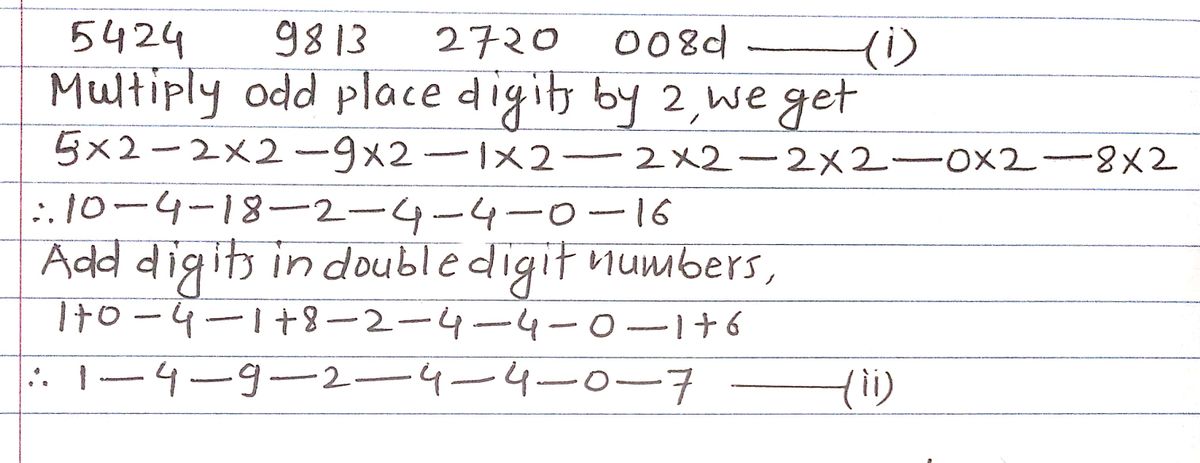 5424 9813 2720 008d —(i)
Multiply odd place digits by 2, we get
5×2—2×2—9×2—1×2—2×2—2×2—0×2—8×2
∴ 10—4—18—2—4—4—0—16
Add digits in double digit numbers,
1+0—4—1+8—2—4—4—0—1+6
∴ 1—4—9—2—4—4—0—7 —(ii)